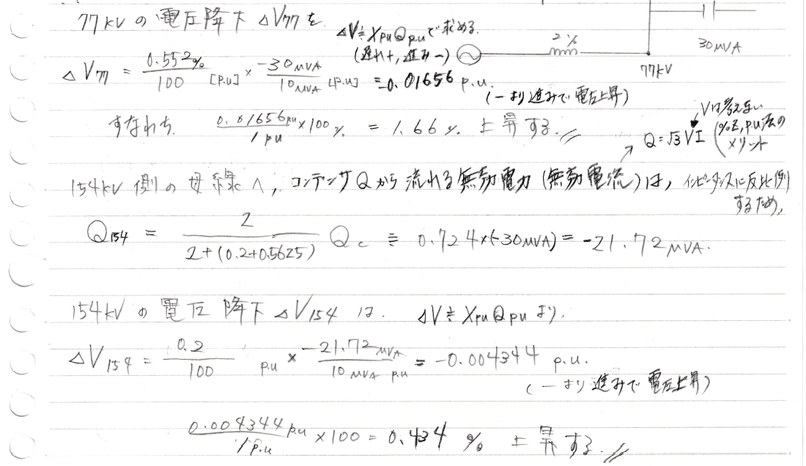 77kVの電圧降下ΔV77を
ΔV≒XpuQpuで求める.
(遅れ+,進み−)
2%
30MVA
77kV
ΔV77 = 0.552%/100 [P.U] × -30MVA/10MVA [P.U] = -0.01656 P.U.
(−より進みで電圧上昇)
すなわち 0.01656pu/1pu ×100% = 1.66% 上昇する.
Vは考えない
Q=√3VI
(%Z,PU法のメリット
154kV側の母線へ,コンデンサQから流れる無効電力(無効電流)は,インピーダンスに反比例
するため,
Q154 = 2/2+(0.2+0.5625) Qc ≡ 0.724×(-30MVA) = -21.72MVA.
154kVの電圧降下ΔV154は. ΔV≒XpuQpuより.
ΔV154 = 0.2/100 P.U × -21.72MVA/10MVA P.U = -0.004344 P.U.
(−より進みで電圧上昇)
0.004344pu/1P.U ×100 = 0.434 % 上昇する.